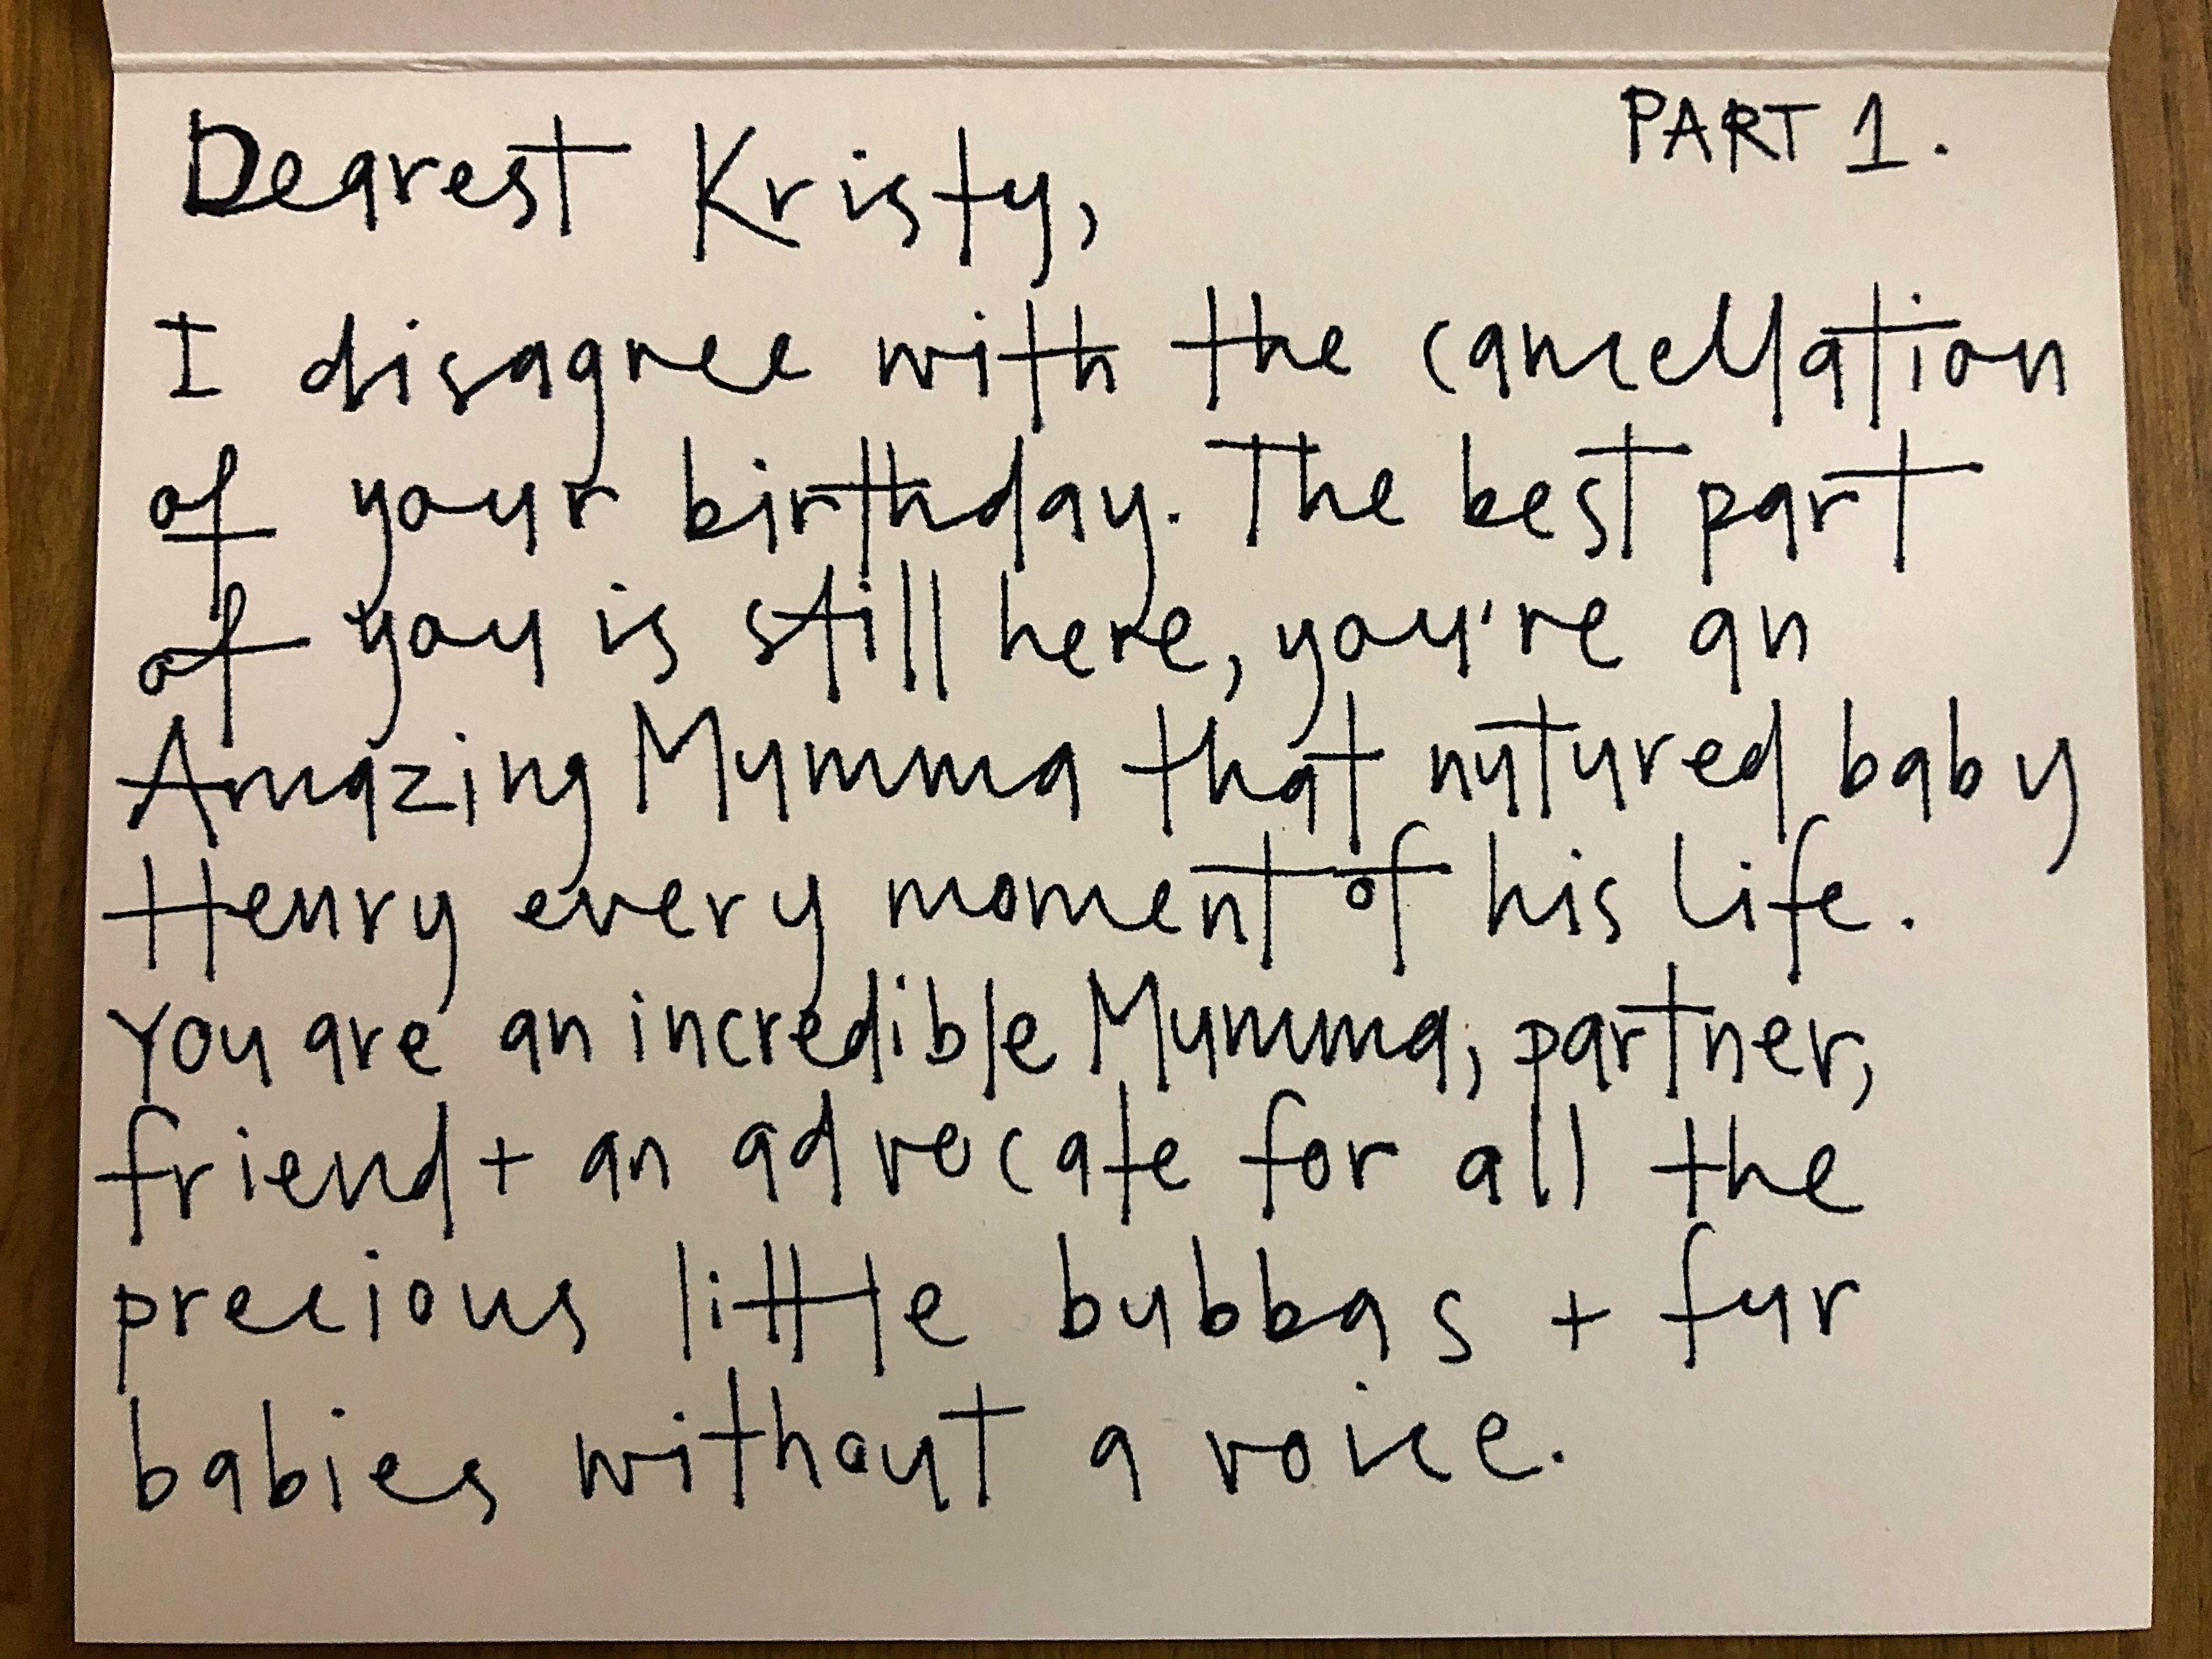 PART 1.
Dearest Kristy,
I disagree with the cancellation
of your birthday. The best part
of you is still here, you're an
Amazing Mumma that nutured baby
Henry every moment of his life.
You are an incredible Mumma, partner,
friend + an advocate for all the
precious little bubbas + fur
babies without a voice.